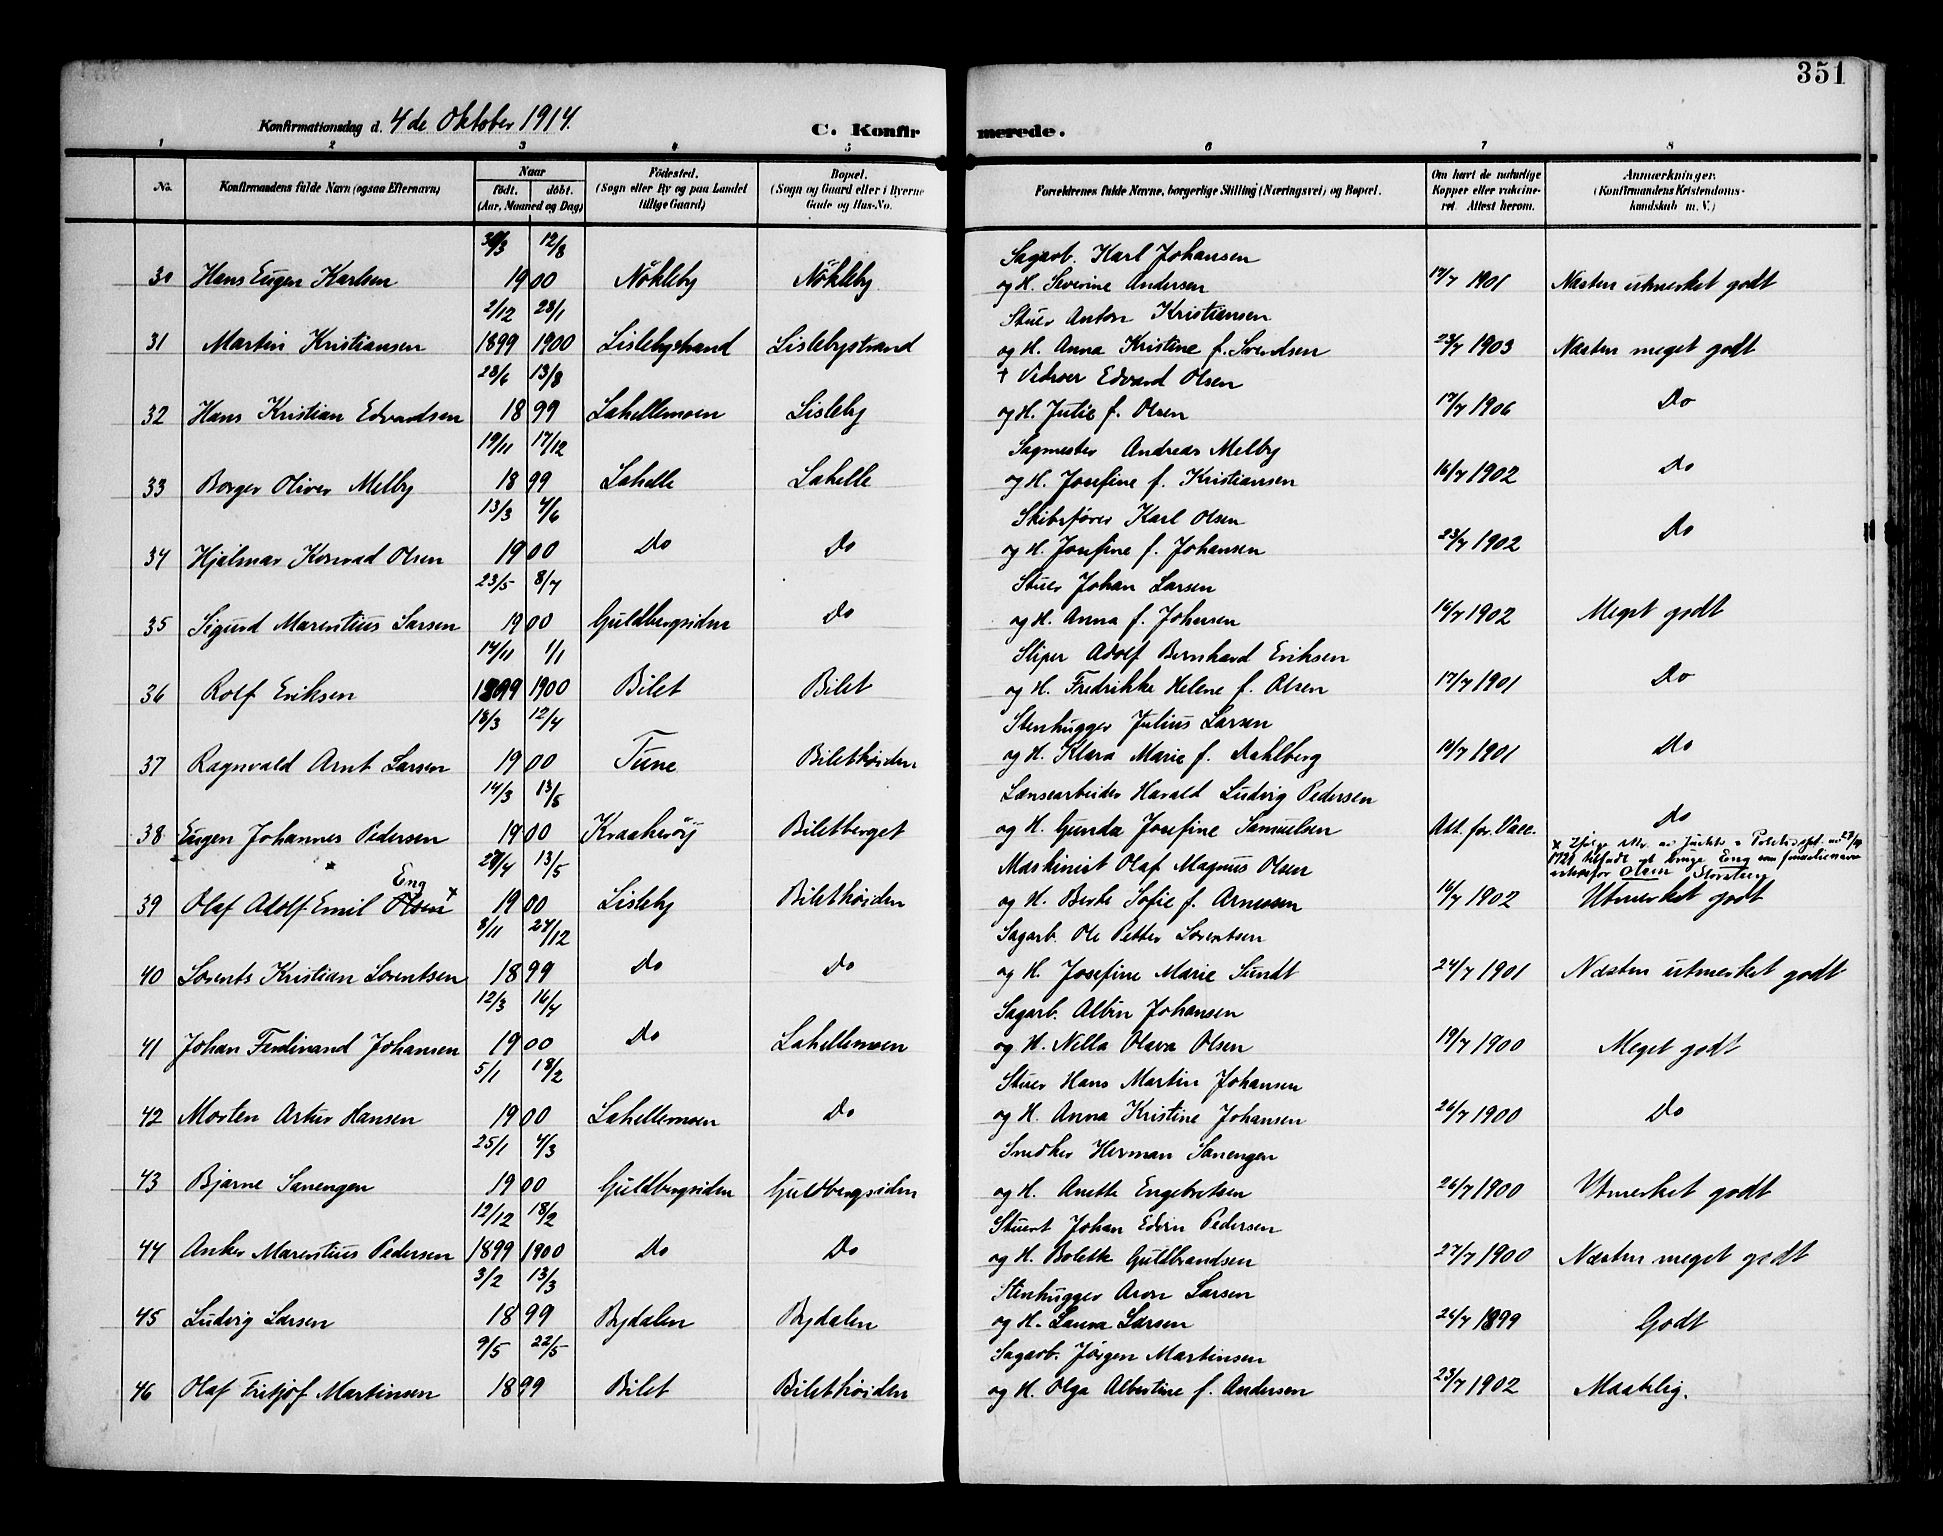 351
Konfirmationsdag d. 4de Oktober 1914.
C. Konfirmerede.
1 2 3 4 5 6 7 8
No. | Konfirmandens fulde Navn (ogsaa Efternavn) | Naar født. døbt. (Aar, Maaned og Dag) | Fødested. (Sogn eller By og paa Landet tillige Gaard) | Bopæl. (Sogn og Gaard eller i Byerne Gade og Hus-No. | Forældrenes fulde Navne, borgerlige Stilling (Næringsvei) og Bopæl. | Om havt de naturlige Kopper eller vaccineret. Attest herom. | Anmærkninger. (Konfirmandens Kristendomskundskab m. V.)
30/3 12/8 Sagarb. Karl Johansen
30 Hans Eugen Karlsen 1900 Nökleby Nökleby og H. Severine Andersen 17/7 1901 Næsten utmerket godt
2/12 28/1 Stuer Anton Kristiansen
31 Martin Kristiansen 1899 1900 Lislebystrand Lislebystrand og H. Anna Kristine f. Svendsen 23/7 1903 Næsten meget godt
23/6 13/8 + Vedroer Edvard Olsen
32 Hans Kristian Edvardsen 1899 Lahellemoen Lisleby og H. Julie f. Olsen 17/7 1906 Do
19/11 17/12 Sagmester Andreas Melby
33 Borger Oliver Melby 1899 Lahelle Lahelle og H. Josefine f. Kristiansen 16/7 1902 Do
13/3 4/6 Skibsfører Karl Olsen
34 Hjalmar Konrad Olsen 1900 Do Do og H. Josefine f. Johansen 23/7 1902 Do
23/5 8/7 Stuer Johan Larsen
35 Sigurd Marentius Larsen 1900 Guldbergsiden Do og H. Anna f. Johnsen 16/7 1902 Meget godt
14/11 1/1 Sliper Adolf Bernhard Eriksen
36 Rolf Eriksen 1899 1900 Bilet Bilet og H. Fredrikke Helene f. Olsen 17/7 1901 Do
18/3 12/4 Stenhugger Julius Larsen
37 Ragnvald Arnt Larsen 1900 Tune Bilethöiden og H. Klara Marie f. Dahlberg 10/7 1901 Do
14/3 13/5 Lænsearbeider Harald Ludvig Pedersen
38 Eugen Johannes Pedersen 1900 Kraakeröy Biletberget og H. Gunda Josefine Samuelsen Att. for. Vacc. Do
29/4 13/5 Maskinist Olaf Magnus Olsen
x Ifølge av Justits & Politidept. av 1921 tilladt at bruge Eng som familienavn istedetfor Olsen
39 Olaf Adolf Emil Olsen x Eng 1900 Lisleby Bilethöiden og H. Berte Sofie f. Arnesen 16/7 1902 Utmerket godt
8/11 27/12 Sagarb. Ole Petter Lorentsen
40 Lorents Kristian Lorentsen 1899 Do Do og H. Josefine Marie Sundt 24/7 1901 Næsten utmerket godt
12/3 16/4 Sagarb. Albin Johansen
41 Johan Ferdinand Johansen 1900 Do Lahellemoen og H. Nella Olava Olsen 19/7 1900 Meget godt
5/1 18/2 Stuer Hans Martin Johansen
42 Morten Artur Hansen 1900 Lahellemoen Do og H. Anna Kristine Johansen 26/7 1900 Do
25/1 4/3 Snedker Herman Sanengen
43 Bjarne Sanengen 1900 Guldbergsiden Guldbergsiden og H. Anette Engebretsen 26/7 1900 Utmerket godt
12/12 18/2 Stuert Johan Edvin Pedersen
44 Anker Marentius Pedersen 1899 1900 Do Do og H. Bolette Guldbrandsen 27/7 1900 Næsten meget godt
3/2 13/3 Stenhugger Aron Larsen
45 Ludvig Larsen 1899 Bydalen Bydalen og H. Laura Larsen 24/7 1899 Godt
9/5 22/5 Sagarb. Jörgen Martinsen
46 Olaf Fritjof Martinsen 1899 Bilet Bilethöiden og H. Olga Albertine f. Andersen 23/7 1902 Maatelig.